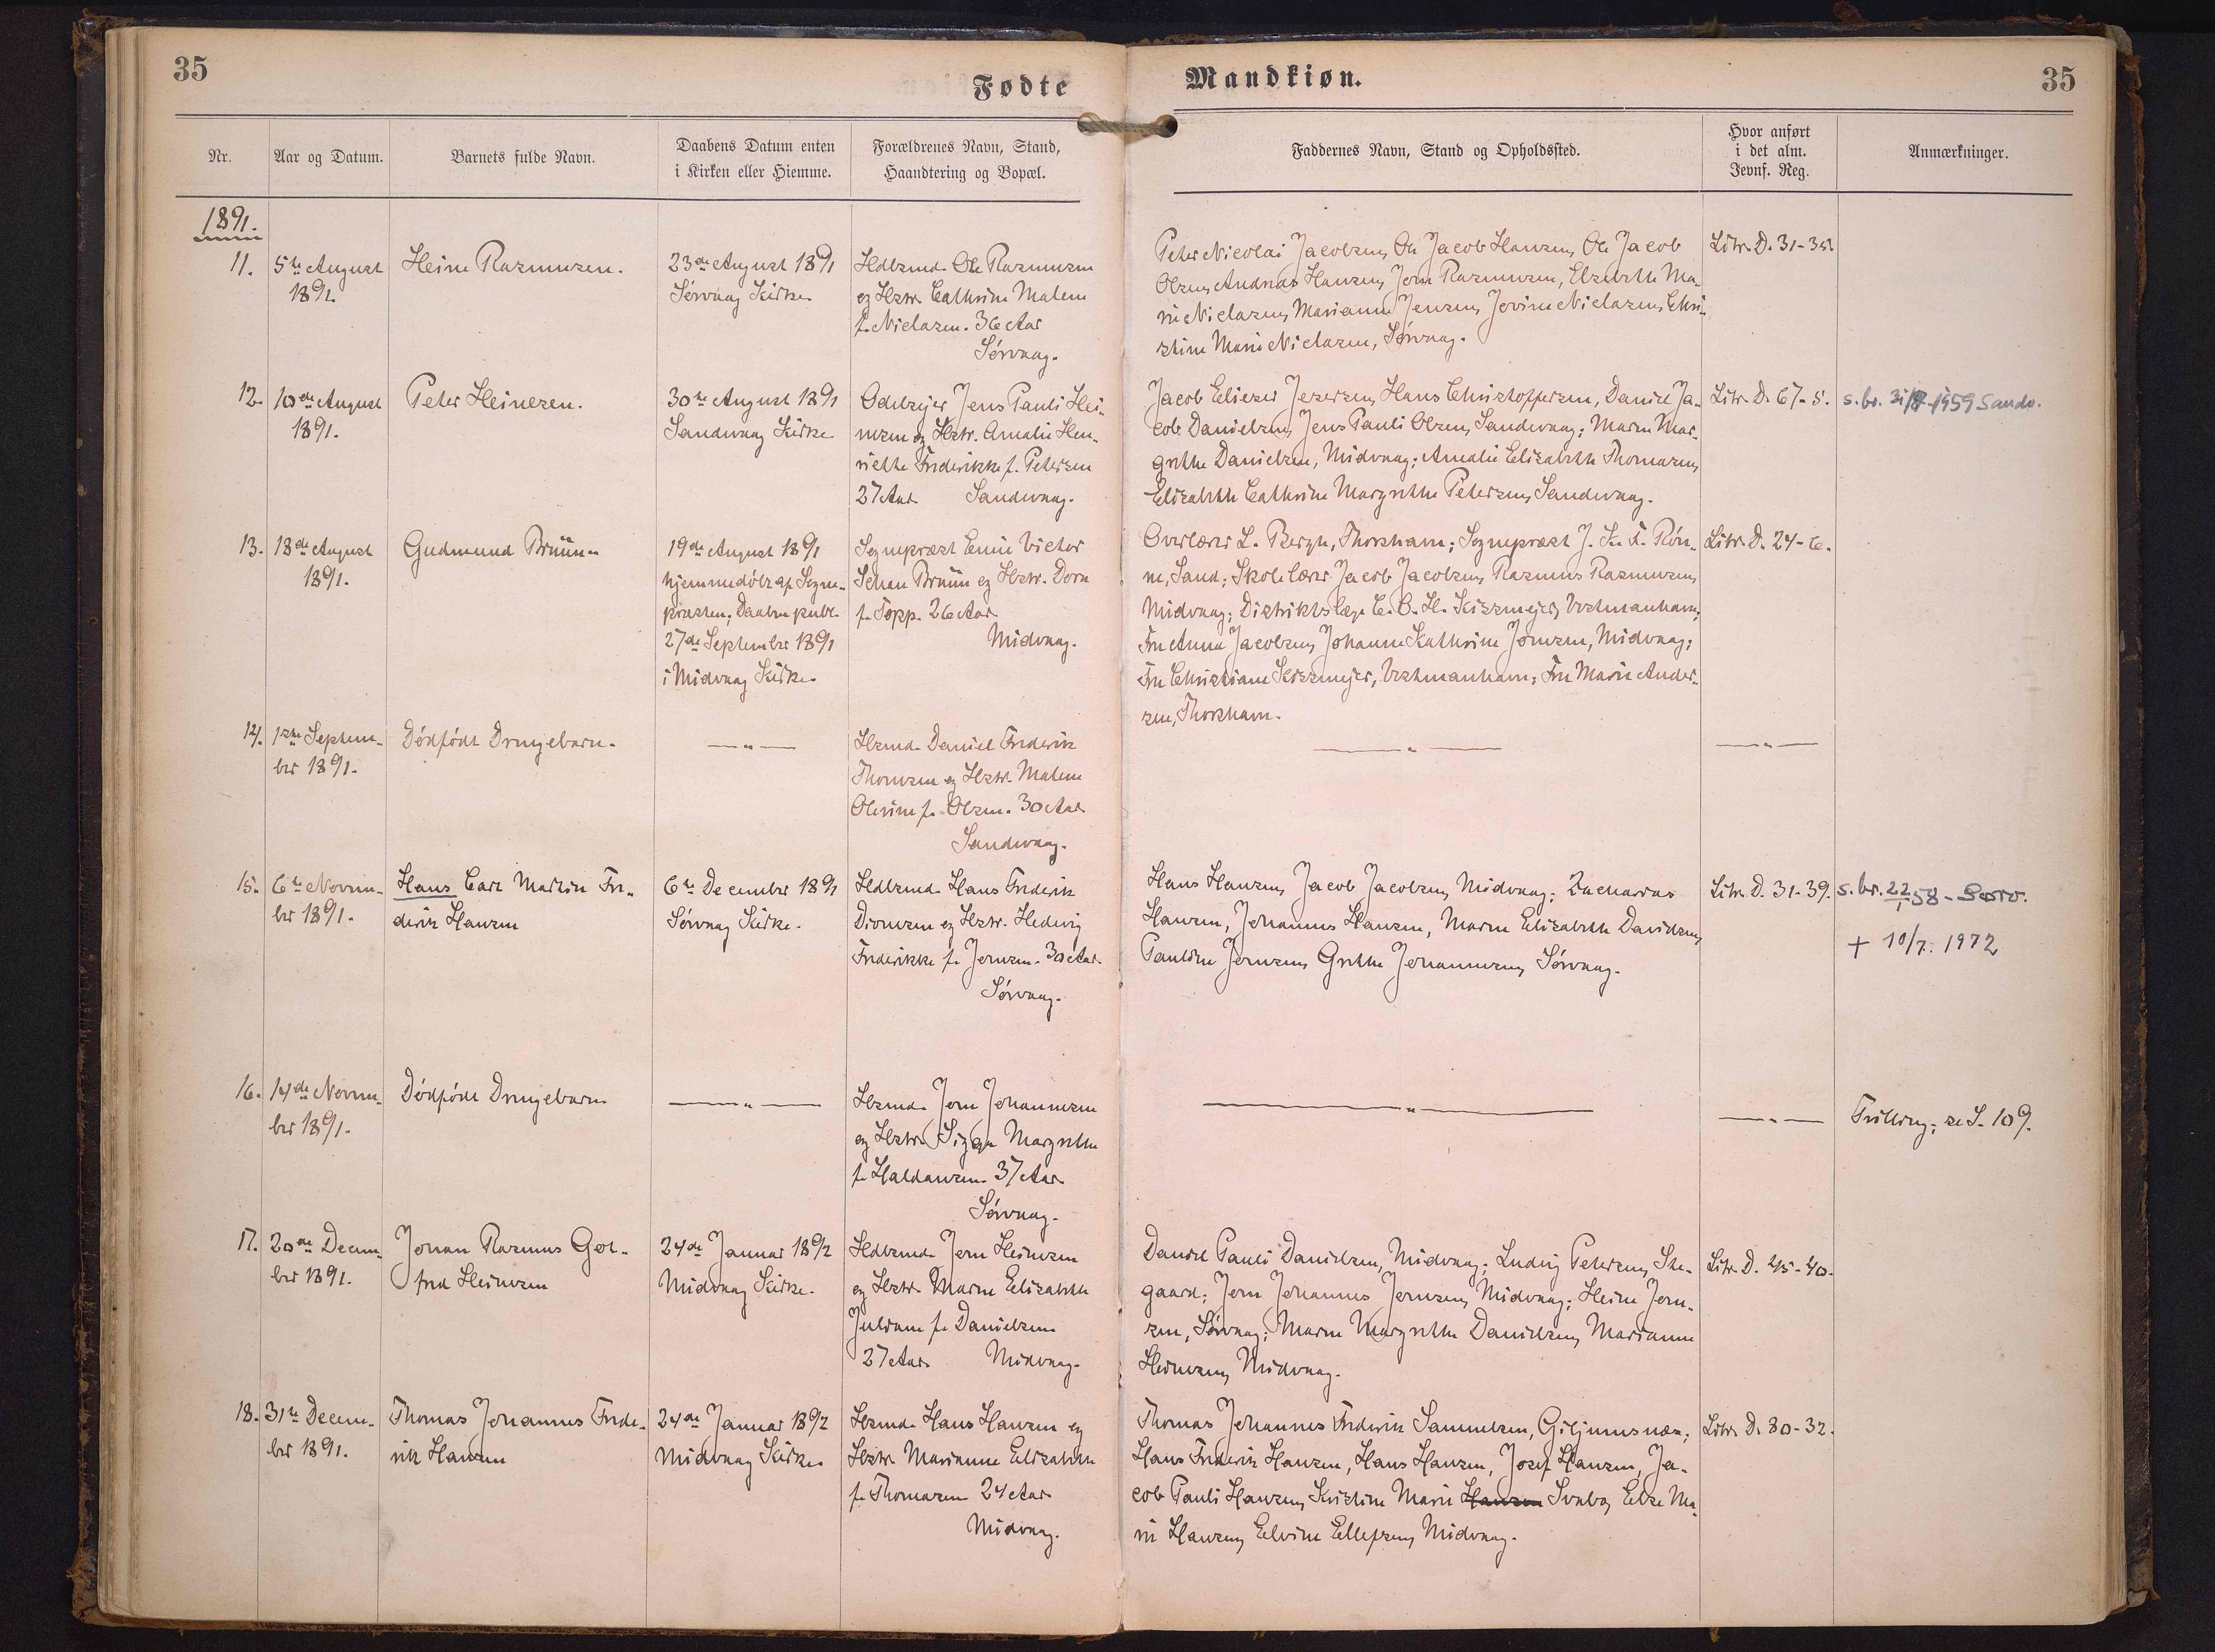 35
Fødte
Mandkiøn.
35
Nr.
Aar og Datum.
Barnets fulde Navn.
Daabens Datum enten
i Kirken eller Hiemme.
Forældrenes Navn, Stand,
Haandtering og Bopæl.
Faddernes Navn, Stand og Opholdssted.
Hvor anført
i det alm.
Jevnf. Reg.
Anmærkninger.
1891.
11.
5te August
1891.
Heine Rasmussen.
23de August 1891
Sørvaag Kirke
Hdlsmd. Ole Rasmussen
og Hstr. Cathrine Malene
f. Niclasen. 36 Aar
Sørvaag.
Peter Nicolai Jacobsen, Ole Jacob Hansen, Ole Jacob
Olsen, Andreas Hansen, Jens Rasmussen, Elsebeth Ma-
rie Niclasen, Marianne Jensen, Jovine Niclasen, Chri-
stine Marie Niclasen, Sørvaag.
Litr. D. 31-35.
12.
10de August
1891.
Peter Heinesen.
30te August 1891
Sandevaag Kirke
Odelsejer Jens Pauli Hei-
nesen og Hstr. Amalie Hen-
riette Frederikke f. Petersen
27 Aar Sandevaag.
Jacob Eliezer Jesersen, Hans Christoffersen, Daniel Ja-
cob Danielsen, Jens Pauli Olsen, Sandevaag; Maren Mar-
grethe Danielsen, Midvaag; Amalie Elisabeth Thomasen,
Elisabeth Cathrine Margrethe Petersen, Sandevaag.
Litr. D. 67-5.
s. br. 31/8-1959 Sandv.
13.
18de August
1891.
Gudmund Brüün
19de August 1891
hjemmedøbt af Sogne-
præsten; Daaben publ.
27de September 1891
i Midvaag Kirke
Sognepræst Emil Victor
Schau Brüün og Hstr. Dora
f. Topp. 26 Aar
Midvaag.
Overlærer L. Bergh, Thorshavn; Sognepræst J. K. F. Røn-
ne, Sand; Skolelærer Jacob Jacobsen, Rasmus Rasmussen,
Midvaag; Distriktslæge C. O. H. Kissmejer, Vestmanhavn;
Fru Anna Jacobsen, Johanne Kathrine Joensen, Midvaag;
Fru Christiane Kissmejer, Vestmanhavn; Fru Marie Ander-
sen, Thorshavn.
Litr. D. 24-6.
14.
1ste Septem-
ber 1891.
Dødfødt Drengebarn.
— „ —
Hsmd. Daniel Frederik
Thomsen og Hstr. Malene
Olevine f. Olsen. 30 Aar
Sandevaag.
— „ —
— „ —
15.
6te Novem-
ber 1891.
Hans Carl Martin Fre-
derik Hansen
6te December 1891
Sørvaag Kirke.
Hdlsmd. Hans Frederik
og Hstr. Hedevig
Frederikke f. Joensen. 30 Aar
Sørvaag.
Hans Hansen, Jacob Jacobsen, Midvaag; Zacharias
Hansen, Johannes Hansen, Maren Elisabeth Davidsen,
Pauline Joensen, Grethe Johannesen, Sørvaag.
Litr. D. 31-39.
s. br. 22/1 58 - Sørv.
+ 10/7. 1972
16.
14de Novem-
ber 1891.
Dødfødt Drengebarn
— „ —
Hsmd. Joen Johannesen
og Hstr. Sigga Margrethe
f. Haldansen 37 Aar
Sørvaag.
— „ —
— „ —
Trilling; se S. 109.
17.
20de Decem-
ber 1891.
Johan Rasmus Got-
fred Heinesen
24de Januar 1892
Midvaag Kirke.
Hdlsmd. Joen Heinesen
og Hstr. Maren Elisabeth
Juliane f. Danielsen
27 Aar Midvaag.
Daniel Pauli Danielsen, Midvaag; Ludvig Petersen, Ste-
gaard; Joen Johannes Joensen, Midvaag; Heine Joen-
sen, Sørvaag; Maren Margrethe Danielsen, Marianne
Heinesen, Midvaag.
Litr. D. 45-40.
18.
31te Decem-
ber 1891.
Thomas Johannes Frede-
rik Hansen
24de Januar 1892
Midvaag Kirke
Hsmd. Hans Hansen og
Hstr. Marianne Elisabeth
f. Thomasen 24 Aar
Midvaag.
Thomas Johannes Frederik Samuelsen, Giljumsnæs;
Hans Frederik Hansen, Hans Hansen, Josef Hansen, Ja-
cob Pauli Hansen, Kristine Marie Hansen Svabo, Else Ma-
rie Hansen, Elvine Ellefsen, Midvaag.
Litr. D. 80-32.